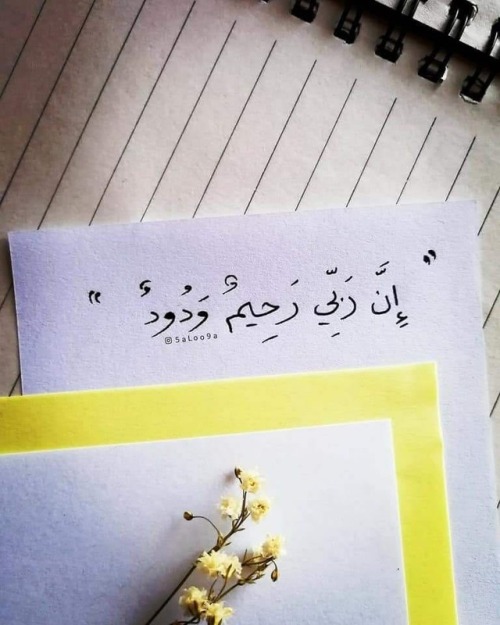 " إِنَّ رَبِّي رَحِيمٌ وَدُودٌ "
5aLoo9a